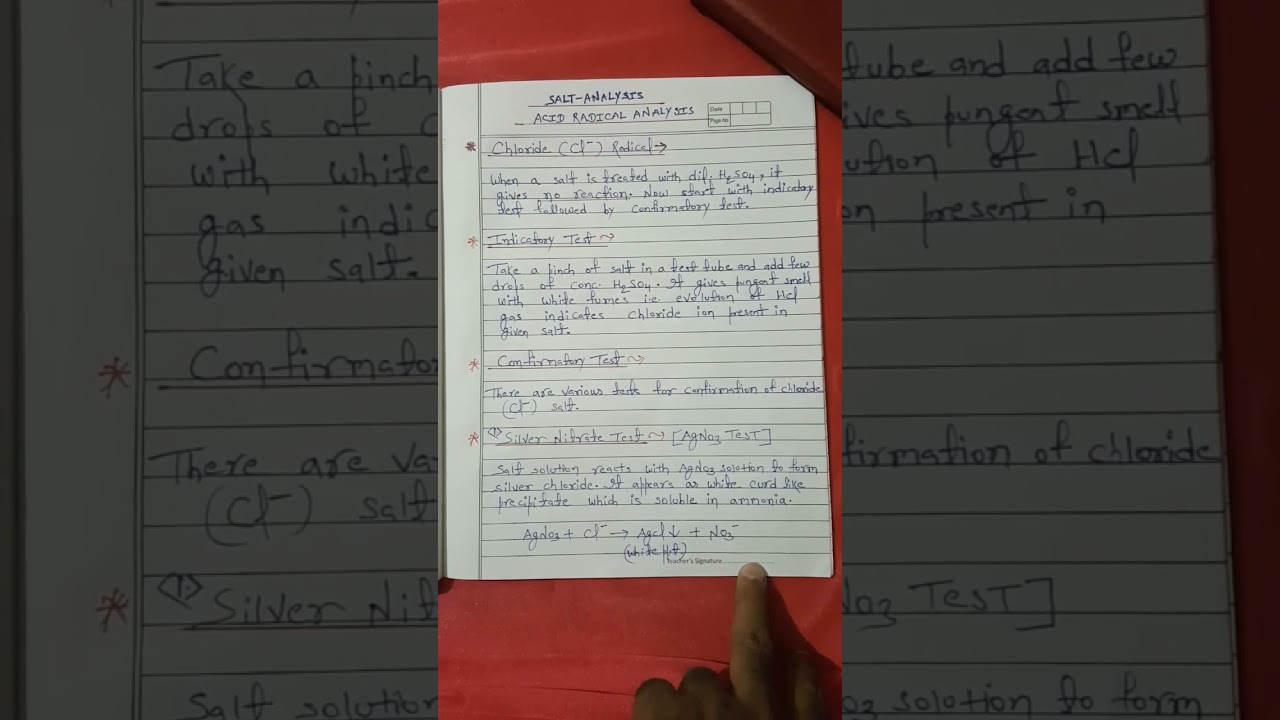 SALT-ANALYSIS
ACID RADICAL ANALYSIS
Date
Page No
* Chloride (Cl⁻) Radical→
When a salt is treated with dil. H₂SO₄, it
gives no reaction. Now start with indicatory
test followed by confirmatory test.
* Indicatory Test ~>
Take a pinch of salt in a test tube and add few
drops of conc. H₂SO₄. It gives pungent smell
with white fumes i.e. evolution of Hcl
gas indicates chloride ion present in
given salt.
* Confirmatory Test ~>
There are various tests for confirmation of chloride
(Cl⁻) salt.
* <1> Silver Nitrate Test ~> [AgNO₃ TEST]
Salt solution reacts with AgNO₃ solotion to form
silver chloride. It appears as white curd like
precipitate which is soluble in ammonia.
AgNO₃ + Cl⁻ → Agcl↓ + NO₃⁻
(white ppt)
Teacher's Signature
Take a pinch
drops of c
with white
gas indic
given salt.
* Confirmator
There are var
(Cl⁻) salt
* <1> Silver Nit
Salt solution
tube and add few
ives pungent smell
ution of Hcl
on present in
firmation of chloride
NO₃ TEST]
O₃ solotion to form